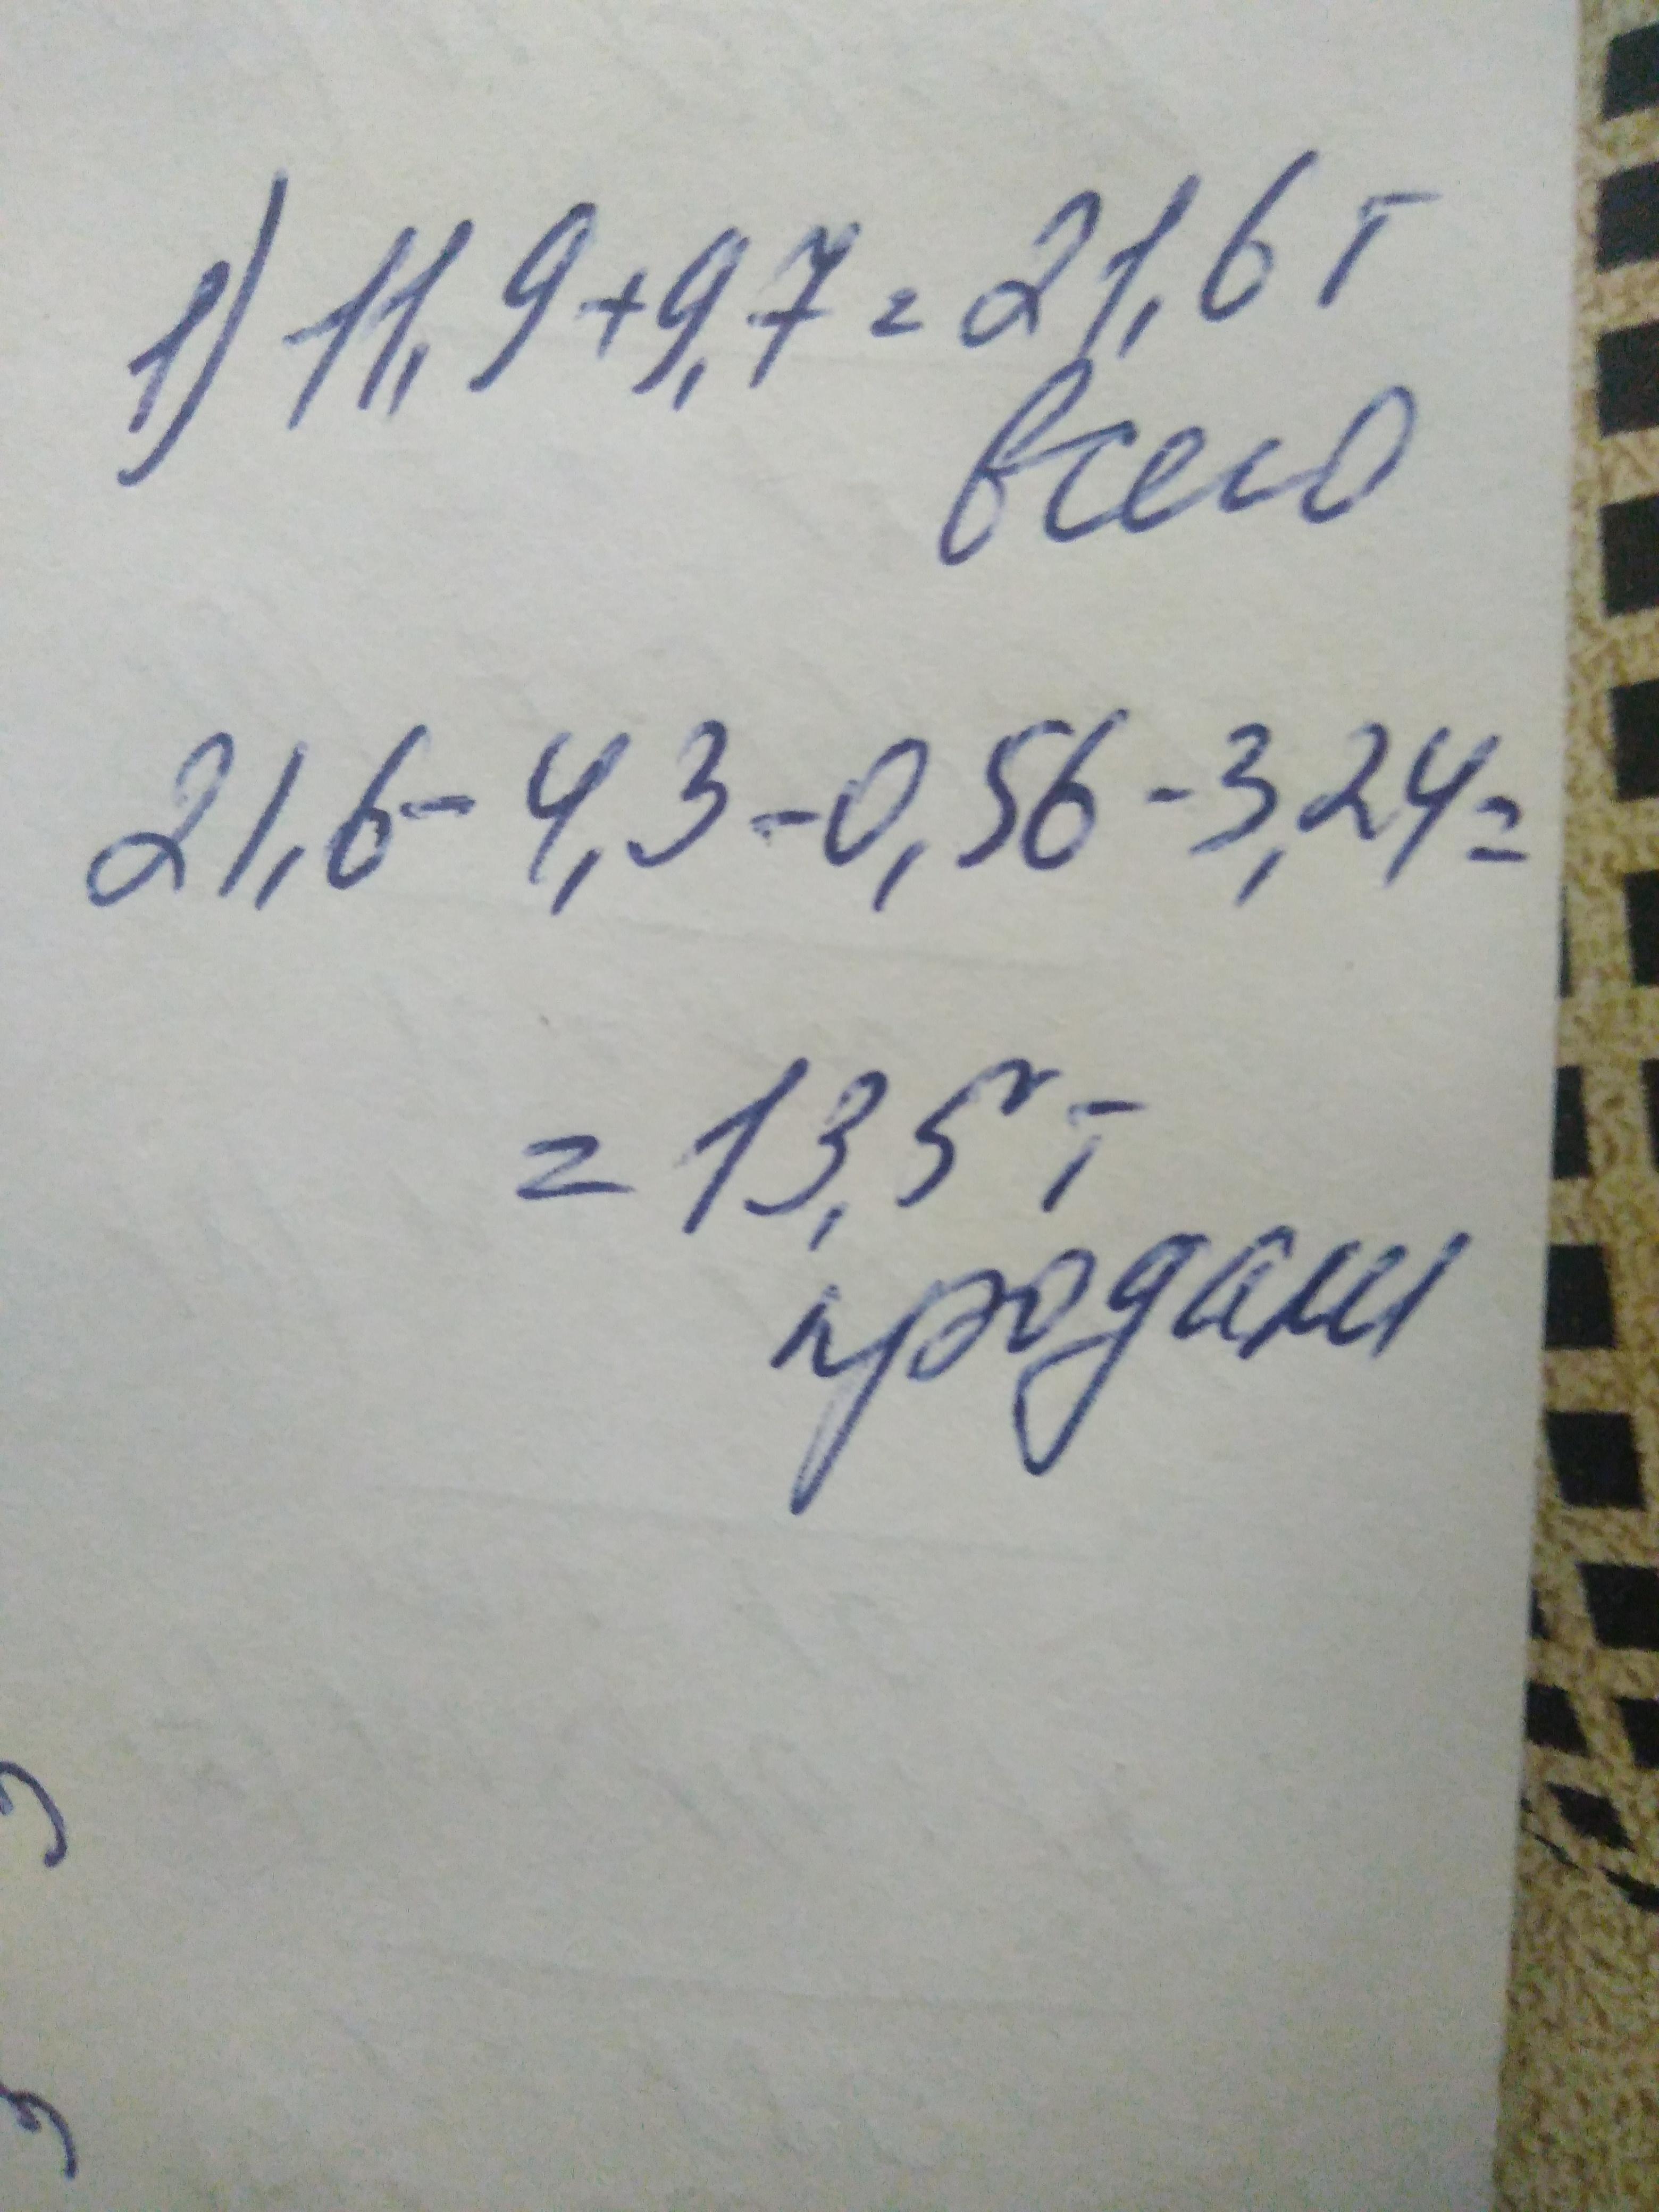 1) 11,9+9,7=21,6 т
всего
21,6-4,3-0,56-3,24=
=13,5 т
продали